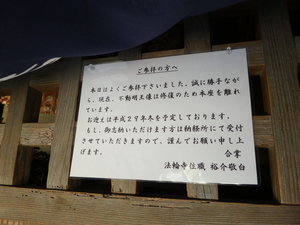 ご参拝の方へ
本日はよくご参拝下さいました。誠に勝手なが
ら、現在、不動明王像は修復のため本座を離れ
ています。
お迎えは平成29年冬を予定しております。
もし、御志納いただけます方は納経所にて受付
させていただきますので、謹んでお願い申し上
げます。
合掌
法輪寺住職 裕介敬白